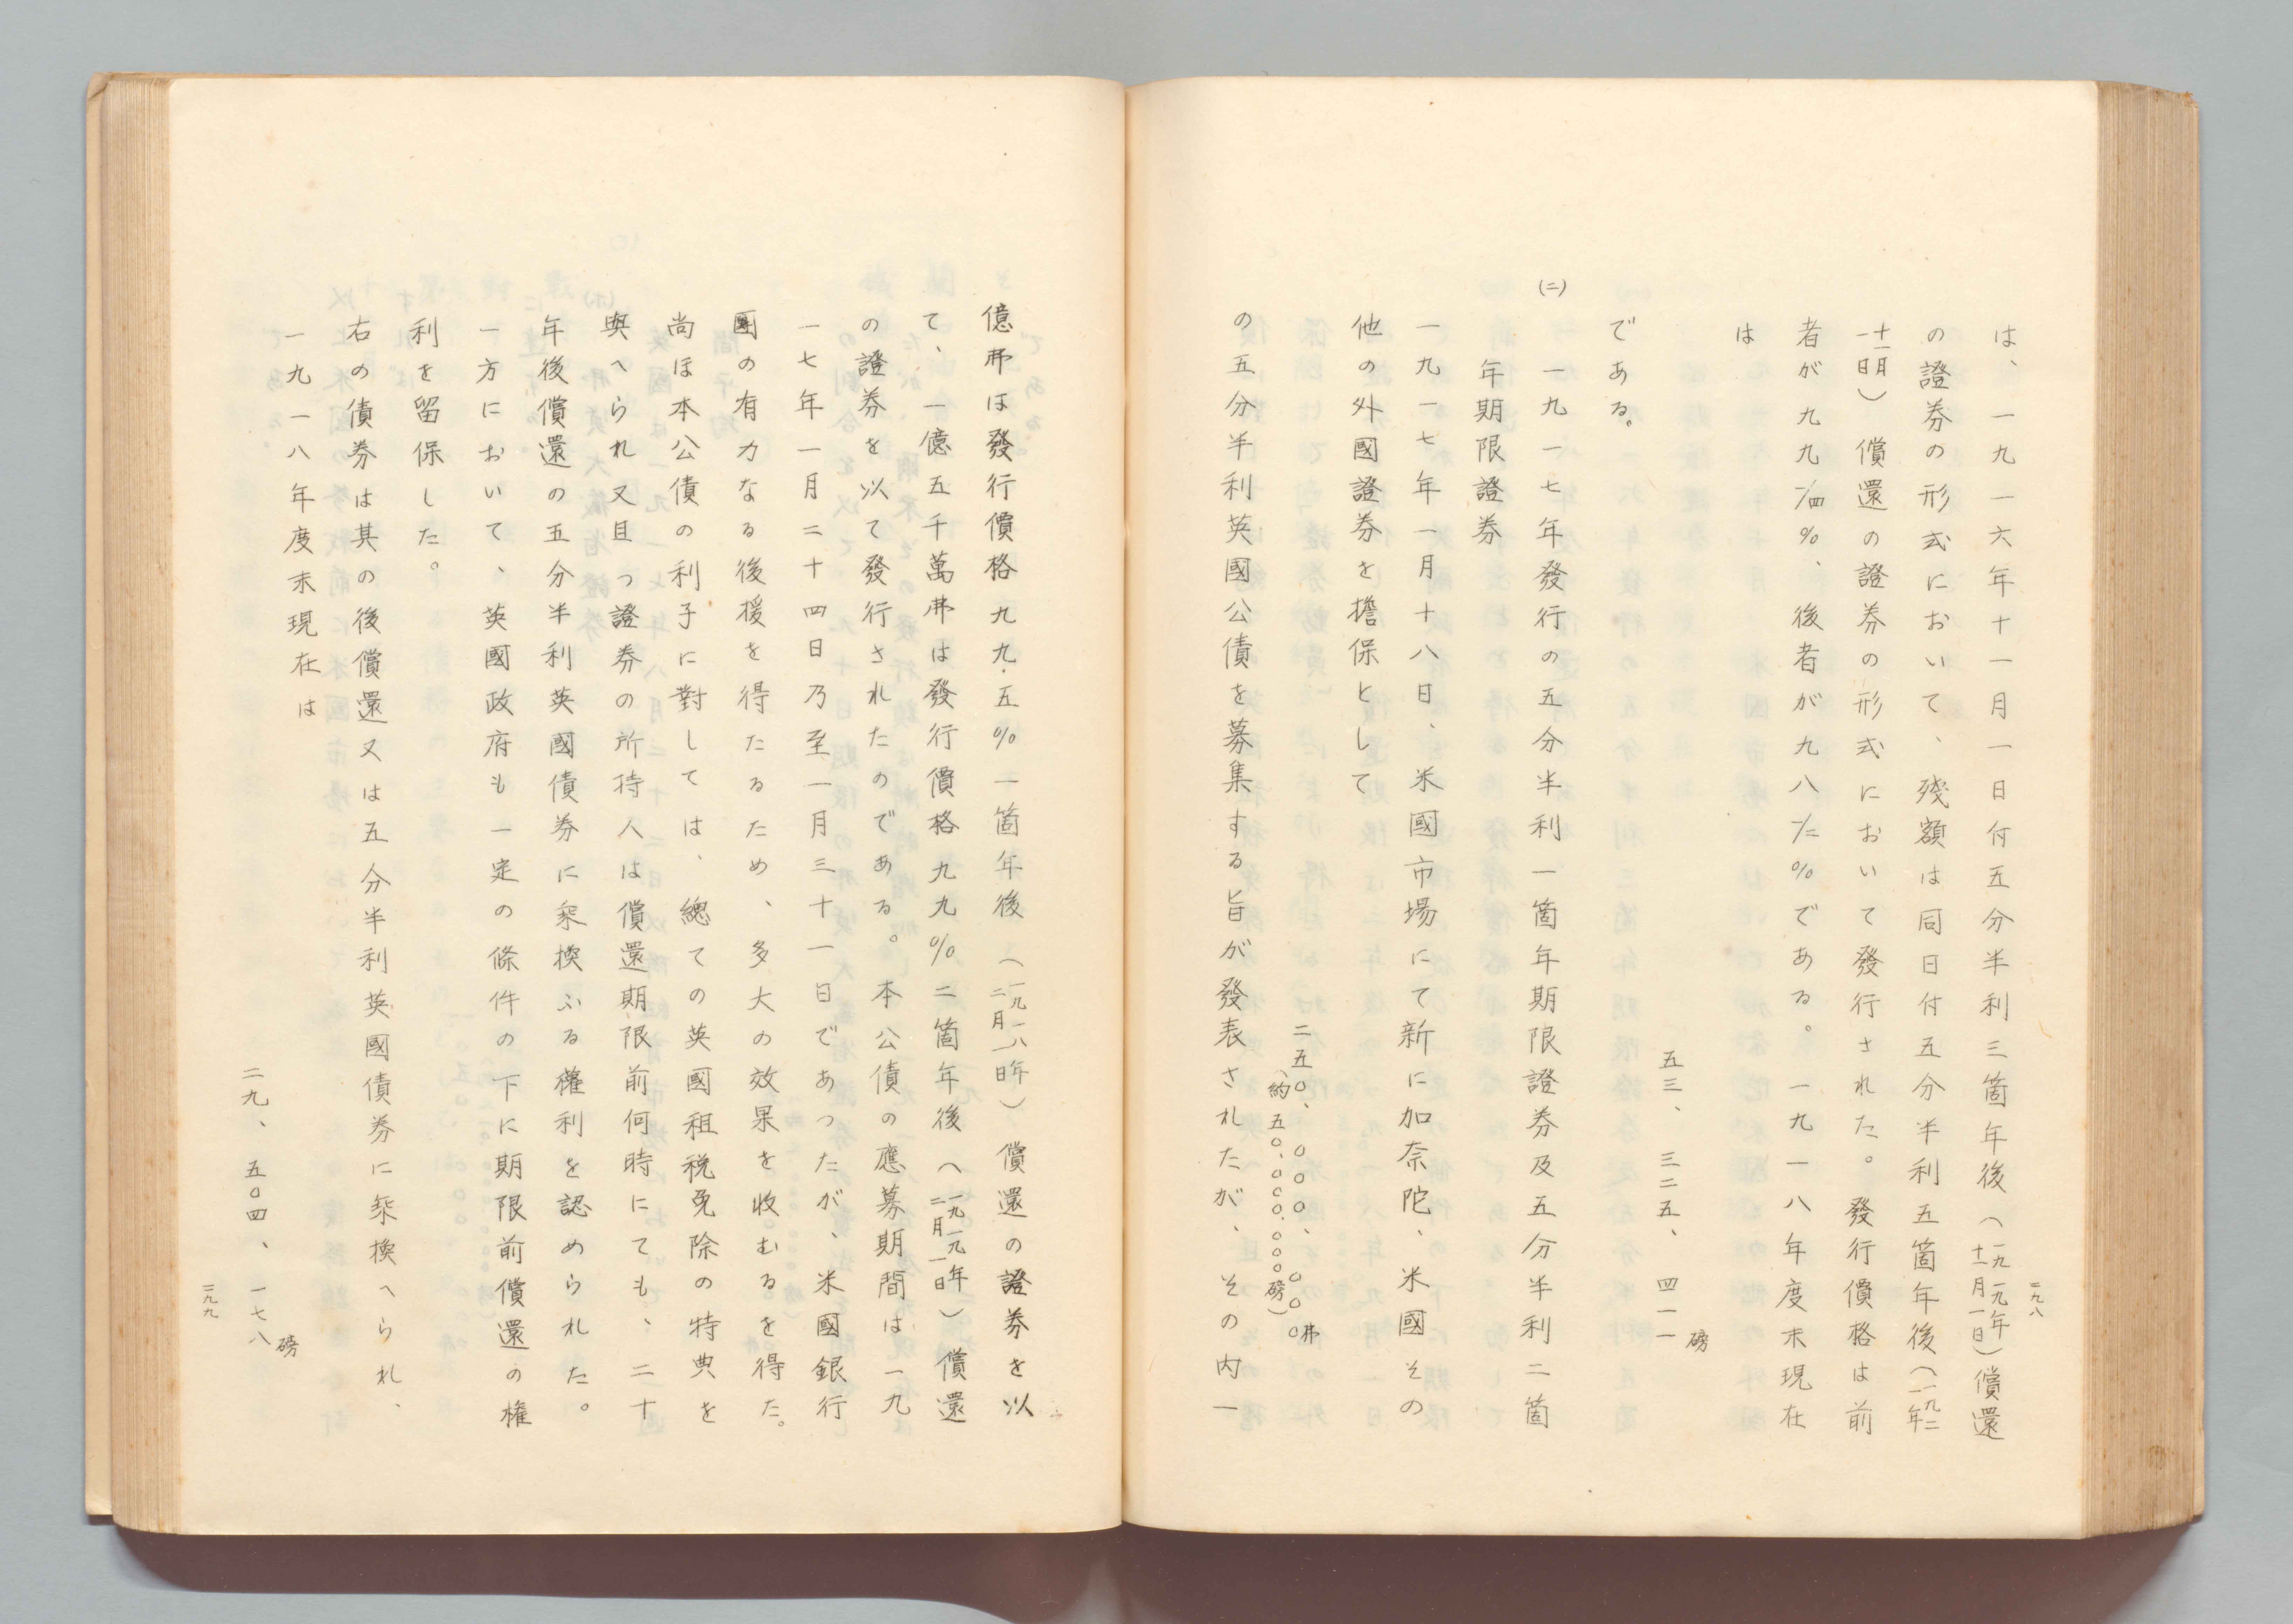 二九八
は、一九一六年十一月一日付五分半利三箇年後（一九一九年十一月一日）償還
の證券の形式において、殘額は同日付五分半利五箇年後（一九二一年
十一月一日）償還の證券の形式において發行された。發行價格は前
者が九九¼%、後者が九八½%である。一九一八年度末現在
は
五三、三二五、四一一磅
である。
(二) 一九一七年發行の五分半利一箇年期限證券及五分半利二箇
年期限證券
一九一七年一月十八日、米國市場にて新に加奈陀、米國その
他の外國證券を擔保として
二五〇、〇〇〇、〇〇〇弗
（約五〇、〇〇〇、〇〇〇磅）
の五分半利英國公債を募集する旨が發表されたが、その内一
億弗は發行價格九九・五%一箇年後（一九一八年二月一日）償還の證券を以
て、一億五千萬弗は發行價格九九%二箇年後（一九一九年二月一日）償還
の證券を以て發行されたのである。本公債の應募期間は一九
一七年一月二十四日乃至一月三十一日であつたが、米國銀行
團の有力なる後援を得たるため、多大の效果を收むるを得た。
尚ほ本公債の利子に對しては、總ての英國租税免除の特典を
與へられ又且つ證券の所持人は償還期限前何時にても、二十
年後償還の五分半利英國債券に乘換ふる權利を認められた。
一方において、英國政府も一定の條件の下に期限前償還の權
利を留保した。
右の債券は其の後償還又は五分半利英國債券に乘換へられ、
一九一八年度末現在は
二九、五〇四、一七八磅
二九九